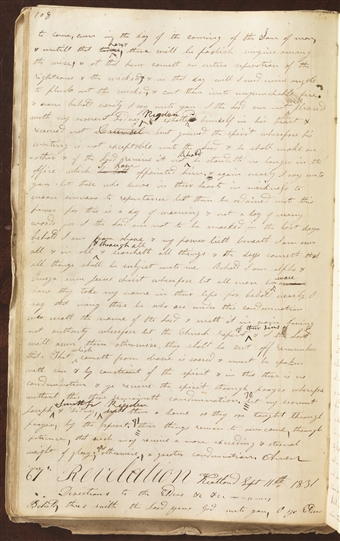 108
to come, even in the day of the coming of the Son of man,
& until that hour there will be foolish virgins among
the wise, & at that hour cometh an entire seperation of the
righteous & the wicked; & in that day will I send mine angels
to pluck out the wicked, & cast them into unquenchable fire,
& now behold verily I say unto you I the Lord am not pleased
with my servent Sidney Rigdon he exalteth himself in his heart &
received not Counsel but grieved the spirit wherefore his
writing is not exceptable unto the Lord & he shall make an
other & if the Lord receive it not behold he standeth no longer in the
office which I have appointed him, & again verily I say unto
you let those who desire in their hearts in meekness to
warn sinners to repentance let them be ordained unto this
power for this is a day of warning & not a day of many
words for I the Lord am not to be mocked in the last days
behold I am from above & my power lieth beneath I am over
all & in all & through all & searcheth all things & the days cometh that
all things shall be subject unto me Behold I am Alpha &
Omega even Jesus Christ wherefore let all men beware
how they take my name in their lips for behold verily I
say that many there be who are under this condemnation
who useth the name of the Lord & useth it in vain having
not authority wherefore let the Church repent of their sins & I the Lord
will own them otherwise they shall be cut off remember
that that which cometh from above is sacred & must be spoken
with care & by constraint of the spirit & in this there is no
condemnation & ye receive the spirit through prayer wherefore
without this there remaineth condemnation let my servent
Joseph Smith Jr & Sidney Rigdon seek them a home as they are taught through
prayer by the spirit these things remain to overcome through
patience, that such may receive a more exceeding & eternal
weight of glory, otherwise, a greater condemnation Amen
67 Revelation Kirtland Sept 11th 1831
Directions to the Elders &c &c
Behold thus saith the Lord your God unto you, O ye Elders